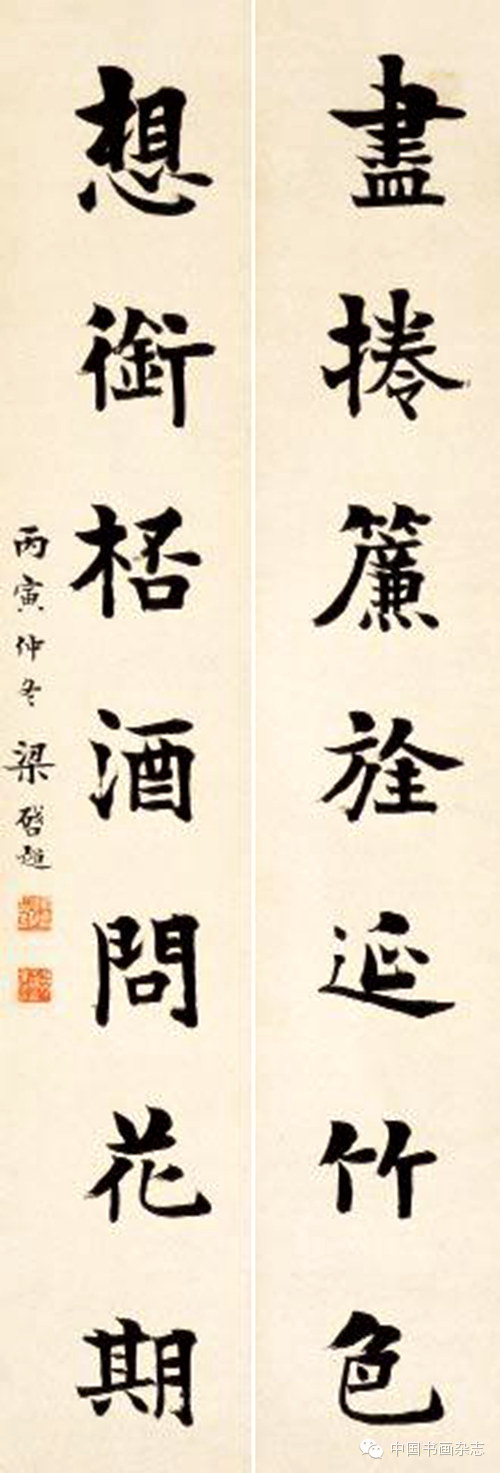 盡捲簾旌延竹色
想銜桮酒問花期
丙寅仲冬 梁啓超
中国书画杂志